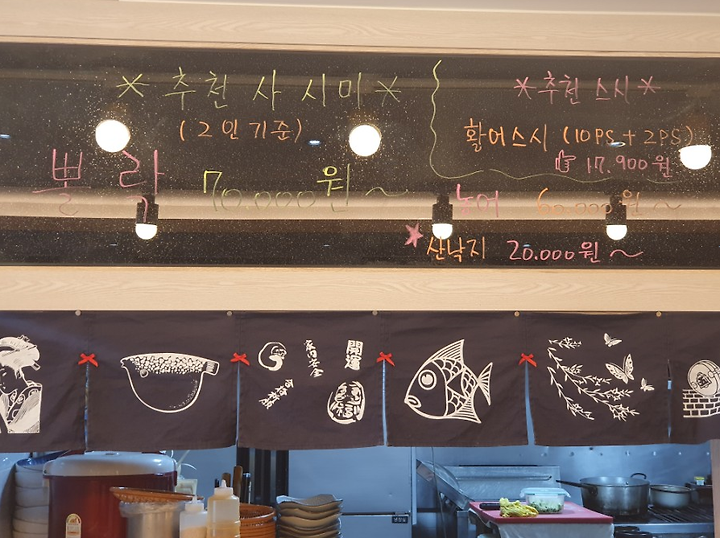 * 추천 사시미 *
(2인기준)
뽈락 70.000원~
*추천 스시*
황어스시 (10PS + 2PS)
17.900원
농어 60.000원~
산낙지 20.000원~
開運
家内安全